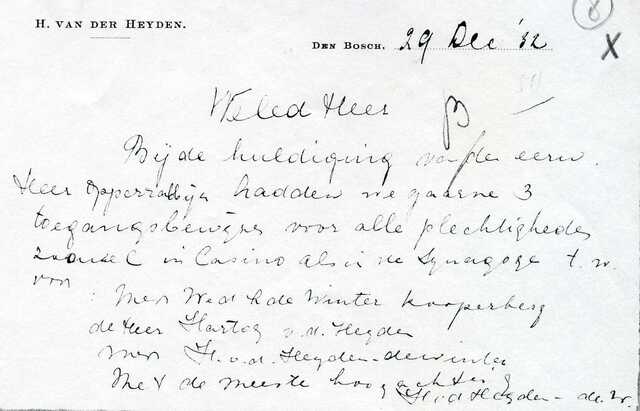 8
H. VAN DER HEYDEN.
X
DEN BOSCH. 29 Dec '32
Weled Heer
Bij de huldiging van den eerw.
Heer Opperrabbijn hadden we gaarne 3
toegangsbewijzen voor alle plechtigheden
zoowel in Casino als in de Synagoge t.w.
voor
: Mevr Wed L de Winter Kooperberg
de Heer Hartog v.d. Heyden
Mevr H. v.d. Heyden-de Winter
Met de meeste hoogachting
H v d Heyden - de W.